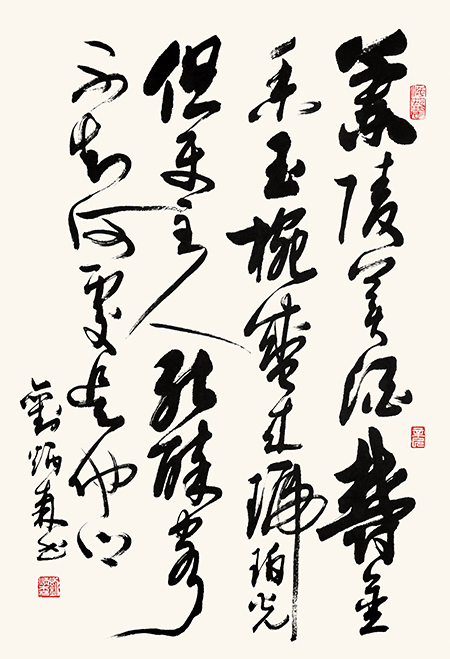 蘭陵美酒鬱金
香玉椀盛來琥珀光
但使主人能醉客
不知何處是他鄉
劉炳森書